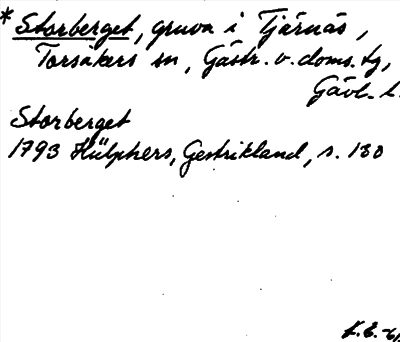 * Storberget, gruva i Tjärnäs,
Torsåkers sn, Gästr. v. doms. tg,
Gävl. l.
Storberget
1793 Hülphers, Gestrikland, s. 130